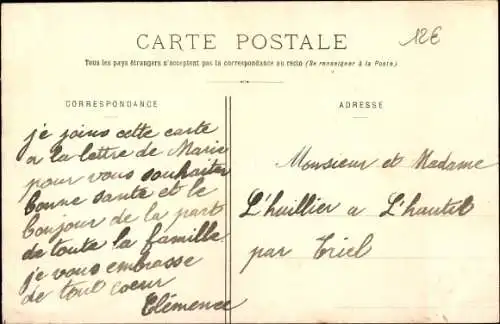 CARTE POSTALE
12€
Tous les pays étrangers n'acceptent pas la correspondance au recto (Se renseigner à la Poste.)
CORRESPONDANCE
ADRESSE
je joins cette carte
a la lettre de Marie
pour vous souhaiter
bonne sante et le
bonjour de la part
de toute la famille.
je vous embrasse
de tout coeur
Clémence
Monsieur et Madame
L'huillier a L'hautil
par Triel